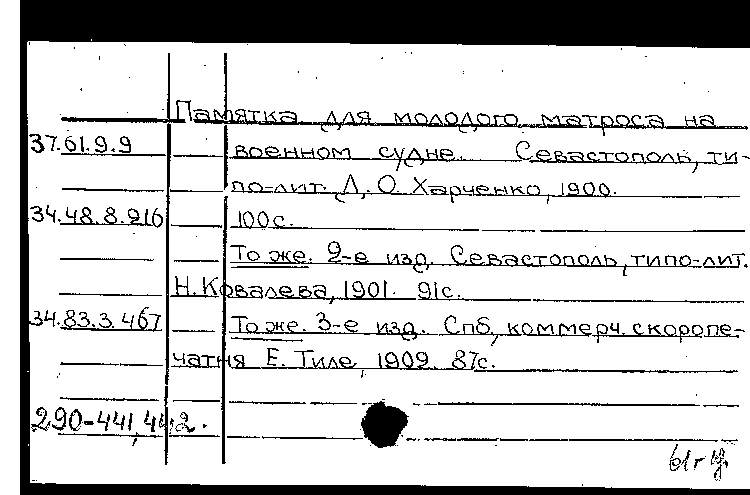 Памятка для молодого матроса на
37.61.9.9 военном судне. Севастополь, ти-
по-лит. Л. О. Харченко, 1900.
34.48.8.216 100с.
То же. 2-е изд. Севастополь, типо-лит.
Н. Ковалева, 1901. 91с.
34.83.3.467 То же. 3-е изд. Спб, коммерч. скоропе-
чатня Е. Тиле, 1902. 87с.
290-441,442.